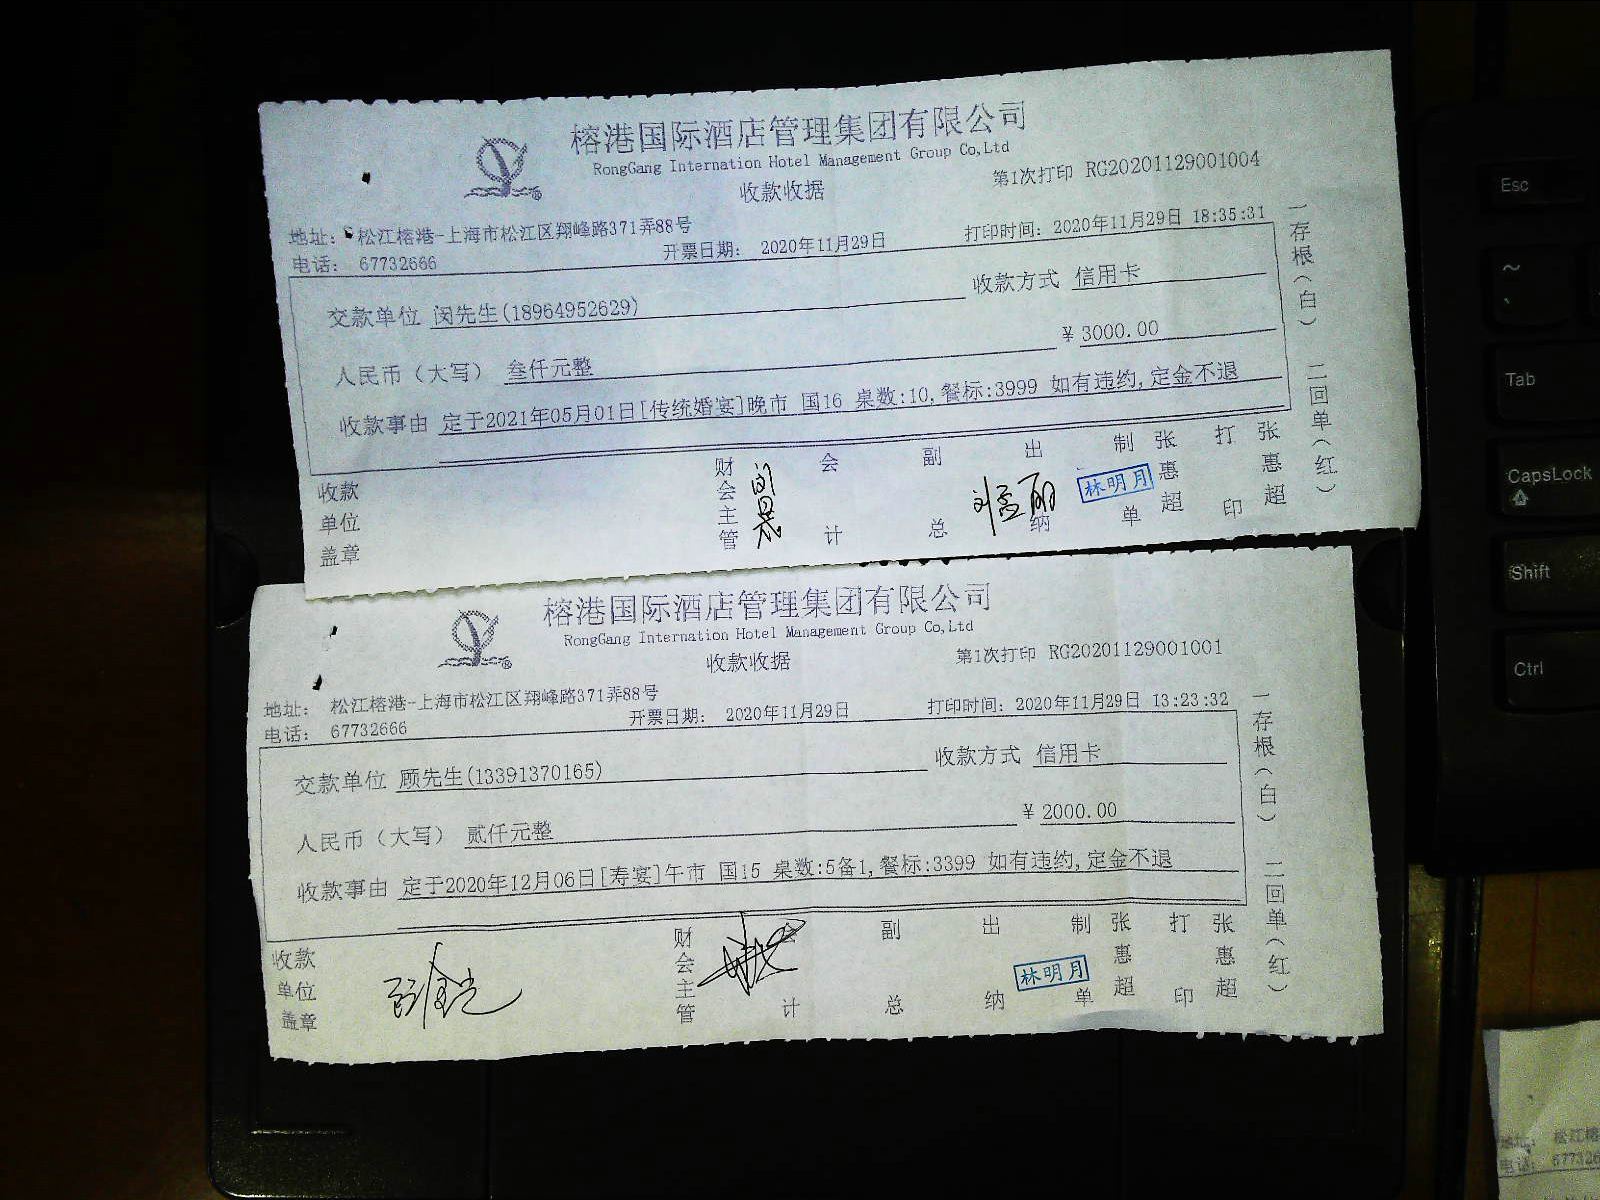 榕港国际酒店管理集团有限公司
RongGang Internation Hotel Management Group Co,Ltd
收款收据
第1次打印 RG20201129001004
地址： 松江榕港-上海市松江区翔峰路371弄88号
电话： 67732666
开票日期： 2020年11月29日
打印时间：2020年11月29日 18:35:31
交款单位 闵先生(18964952629)
收款方式 信用卡
人民币（大写） 叁仟元整
￥3000.00
收款事由 定于2021年05月01日[传统婚宴]晚市 国16 桌数:10,餐标:3999 如有违约,定金不退
收款单位盖章
财会主管
会计
副总
出纳
林明月
制单
张惠超
打印
张惠超
一存根（白）
二回单（红）
榕港国际酒店管理集团有限公司
RongGang Internation Hotel Management Group Co,Ltd
收款收据
第1次打印 RG20201129001001
地址： 松江榕港-上海市松江区翔峰路371弄88号
电话： 67732666
开票日期： 2020年11月29日
打印时间：2020年11月29日 13:23:32
交款单位 顾先生(13391370165)
收款方式 信用卡
人民币（大写） 贰仟元整
￥2000.00
收款事由 定于2020年12月06日[寿宴]午市 国15 桌数:5备1,餐标:3399 如有违约,定金不退
收款单位盖章
财会主管
会计
副总
出纳
林明月
制单
张惠超
打印
张惠超
一存根（白）
二回单（红）
Esc
~
Tab
CapsLock
Shift
Ctrl
地址： 松江榕
电话： 677326